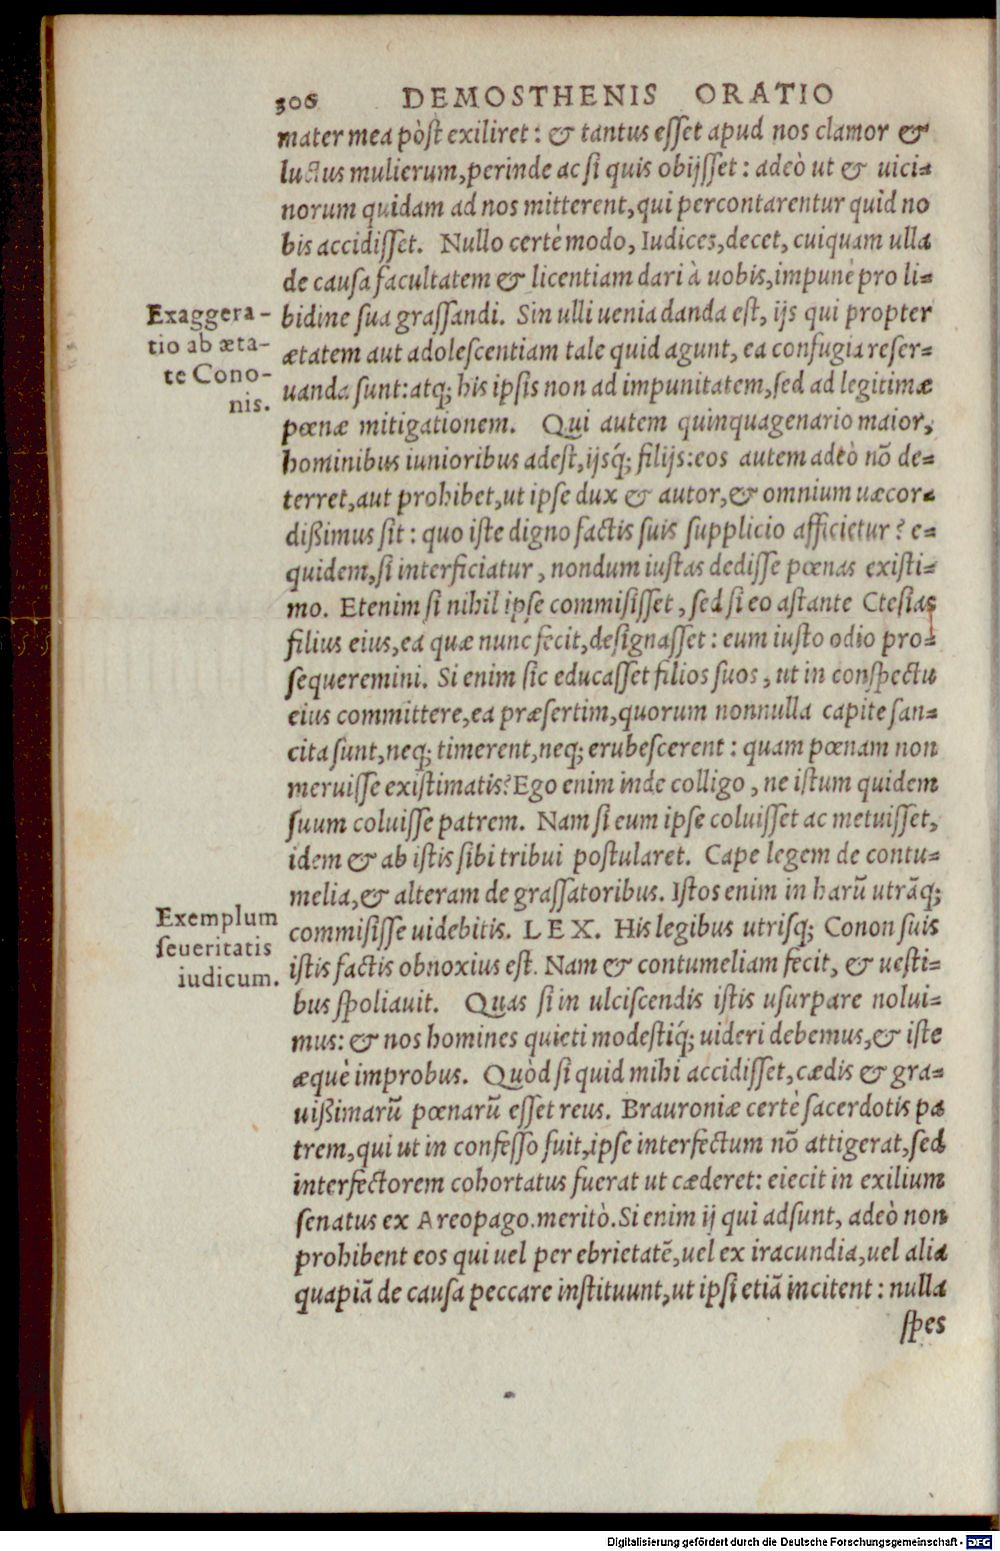 306 DEMOSTHENIS ORATIO
mater mea pòst exiliret: & tantus esset apud nos clamor &
luctus mulierum, perinde ac si quis obijsset: adeò ut & uici-
norum quidam ad nos mitterent, qui percontarentur quid no
bis accidisset. Nullo certè modo, Iudices, decet, cuiquam ulla
de causa facultatem & licentiam dari à uobis, impunè pro li-
Exaggera-
tio ab æta-
te Cono-
nis.
bidine sua grassandi. Sin ulli uenia danda est, ijs qui propter
ætatem aut adolescentiam tale quid agunt, ea confugia reser-
uanda sunt: atq; his ipsis non ad impunitatem, sed ad legitimæ
pœnæ mitigationem. Qui autem quinquagenario maior,
hominibus iunioribus adest, ijsq́; filijs: eos autem adeò nō de-
terret, aut prohibet, ut ipse dux & autor, & omnium uæcor-
dißimus sit: quo iste digno factis suis supplicio afficietur? e-
quidem, si interficiatur, nondum iustas dedisse pœnas existi-
mo. Etenim si nihil ipse commisisset, sed si eo astante Ctesias
filius eius, ea quæ nunc fecit, designasset: eum iusto odio pro-
sequeremini. Si enim sic educasset filios suos, ut in conspectu
eius committere, ea præsertim, quorum nonnulla capite san-
cita sunt, neq; timerent, neq; erubescerent: quam pœnam non
meruisse existimatis? Ego enim inde colligo, ne istum quidem
suum coluisse patrem. Nam si eum ipse coluisset ac metuisset,
idem & ab istis sibi tribui postularet. Cape legem de contu-
melia, & alteram de grassatoribus. Istos enim in harū utrāq;
Exemplum
seueritatis
iudicum.
commisisse uidebitis. LEX. His legibus utrisq; Conon suis
istis factis obnoxius est. Nam & contumeliam fecit, & uesti-
bus spoliauit. Quas si in ulciscendis istis usurpare nolui-
mus: & nos homines quieti modestiq́; uideri debemus, & iste
æquè improbus. Quòd si quid mihi accidisset, cædis & gra-
uißimarū pœnarū esset reus. Brauroniæ certè sacerdotis pa
trem, qui ut in confesso fuit, ipse interfectum nō attigerat, sed
interfectorem cohortatus fuerat ut cæderet: eiecit in exilium
senatus ex Areopago. meritò. Si enim ij qui adsunt, adeò non
prohibent eos qui uel per ebrietatē, uel ex iracundia, uel alia
quapiā de causa peccare instituunt, ut ipsi etiā incitent: nulla
spes
Digitalisierung gefördert durch die Deutsche Forschungsgemeinschaft - DFG